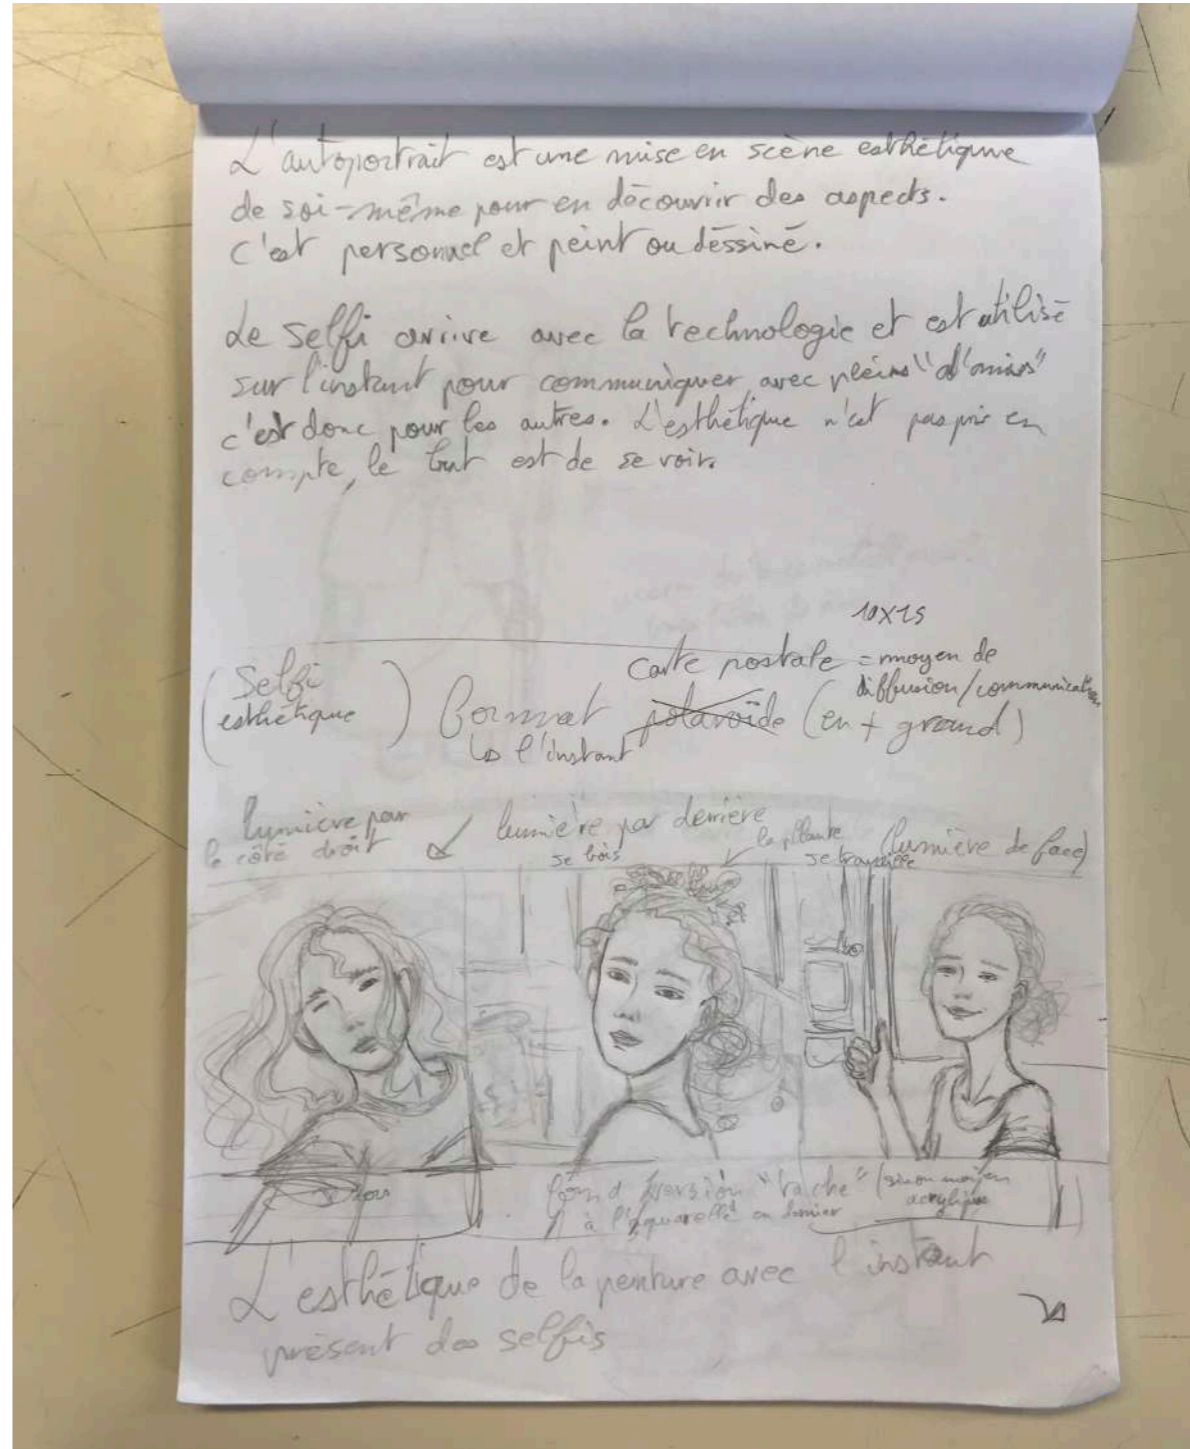 L'autoportrait est une mise en scène esthétique
de soi-même pour en découvrir des aspects.
C'est personnel et peint ou déssiné.
Le Selfi arrive avec la technologie et est utilisé
sur l'instant pour communiquer avec pleins "d'amis"
c'est donc pour les autres. L'esthétique n'est pas pris en
compte, le but est de se voir.
10x15
carte postale = moyen de
diffusion/communication
(Selfi
esthétique)
format polaroïde (en + grand)
↳ l'instant
lumière par
le côté droit
lumière par derrière
se bois
la plante
se travaille
(lumière de face)
fond version "tache" (sinon moyen
à l'aquarelle en dernier
acrylique
L'esthétique de la peinture avec l'instant
présent des selfis